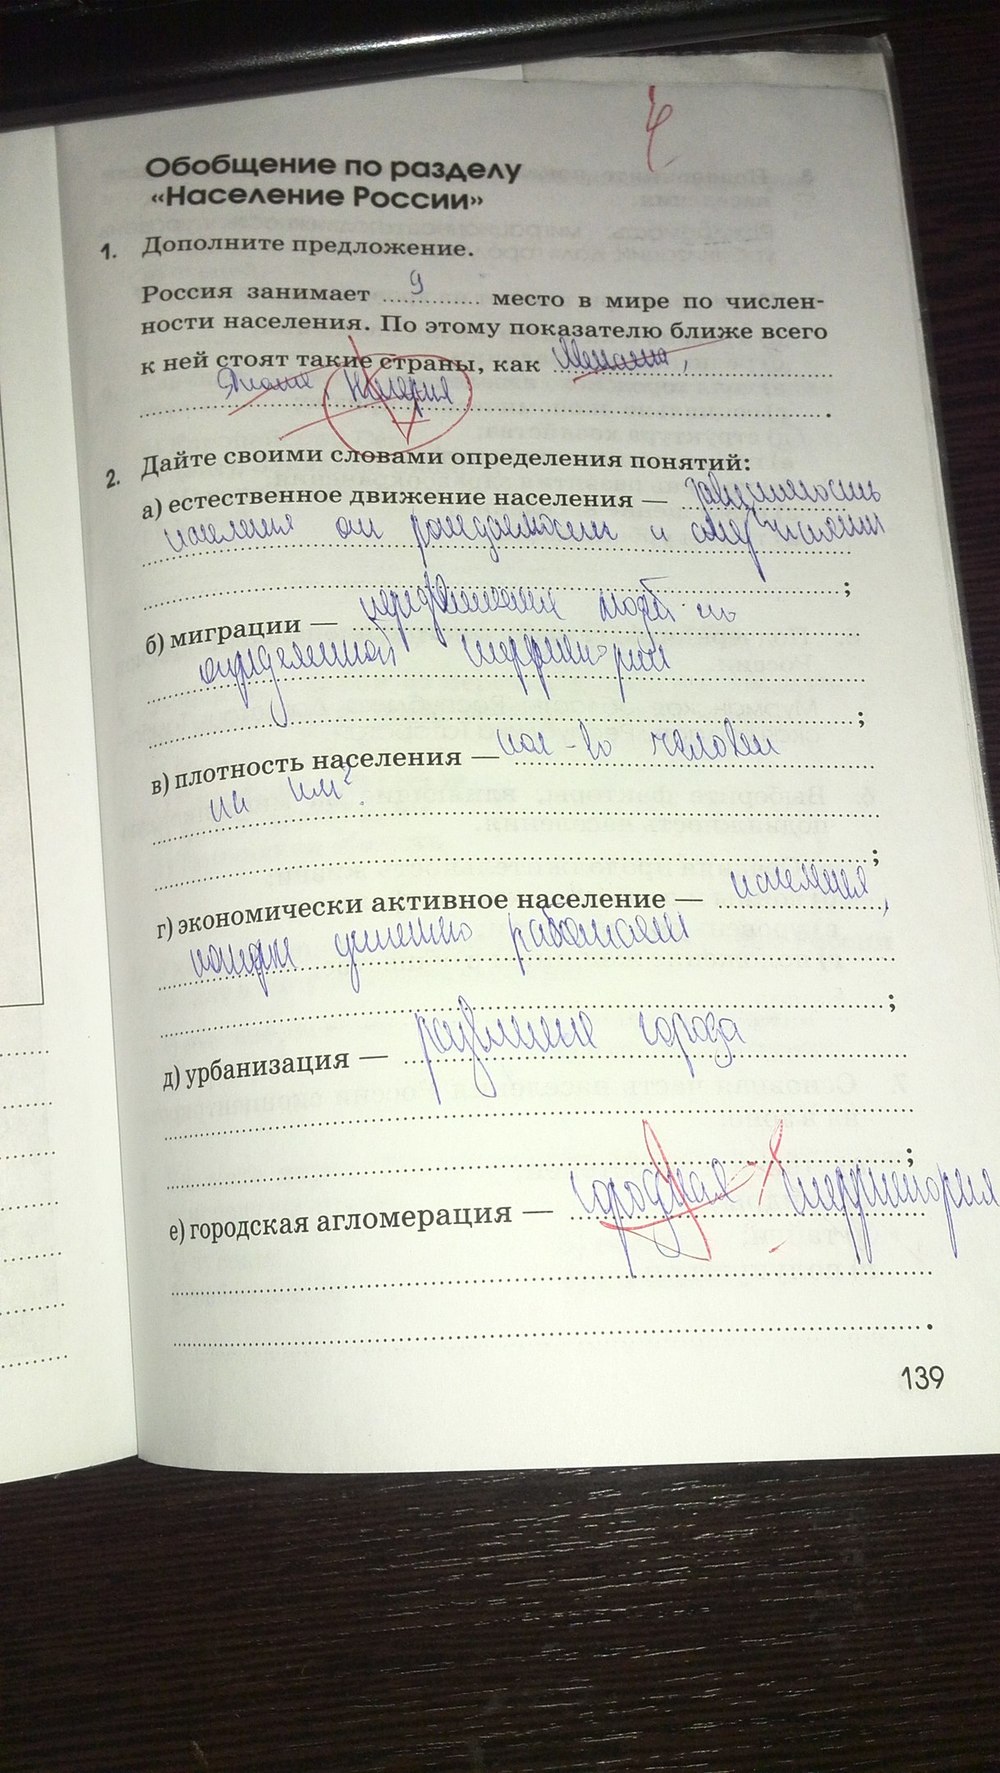 4
Обобщение по разделу
«Население России»
1. Дополните предложение.
Россия занимает 9 место в мире по числен-
ности населения. По этому показателю ближе всего
к ней стоят такие страны, как Мексика,
Япония, Нигерия.
2. Дайте своими словами определения понятий:
а) естественное движение населения — зависимость
населения от рождаемости и смертности
;
б) миграции — передвижения людей по
определенной территории
;
в) плотность населения — кол-во человек
на км².
;
г) экономически активное население — население,
которое успешно работает
;
д) урбанизация — развитие города
;
е) городская агломерация — городская территория
.
139